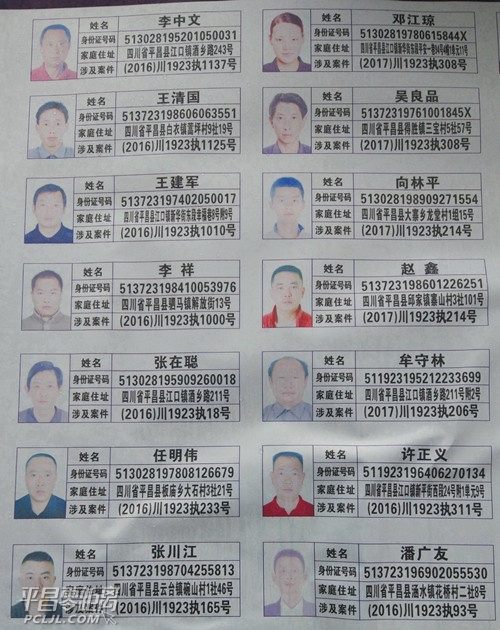 姓名 李中文
身份证号码 513028195201050031
家庭住址 四川省平昌县江口镇酒乡路243号
涉及案件 (2016)川1923执1137号
姓名 邓江琼
身份证号码 51302819780615844X
家庭住址
涉及案件 (2017)川1923执308号
姓名 王清国
身份证号码 513723198606063551
家庭住址 四川省平昌县白衣镇莴坪村9社19号
涉及案件 (2016)川1923执1125号
姓名 吴良品
身份证号码 51372319761001845X
家庭住址 四川省平昌县得胜镇三宝村5社57号
涉及案件 (2017)川1923执308号
姓名 王建军
身份证号码 513723197402050017
家庭住址 四川省平昌县江口镇新华街东段幸福巷8号附9号
涉及案件 (2016)川1923执1010号
姓名 向林平
身份证号码 513028198909271554
家庭住址 四川省平昌县大寨乡龙堂村1组15号
涉及案件 (2017)川1923执214号
姓名 李祥
身份证号码 513723198410053976
家庭住址 四川省平昌县驷马镇解放街13号
涉及案件 (2016)川1923执1000号
姓名 赵鑫
身份证号码 513723198601226251
家庭住址 四川省平昌县邱家镇寨山村3社101号
涉及案件 (2017)川1923执214号
姓名 张在聪
身份证号码 513028195909260018
家庭住址 四川省平昌县江口镇酒乡路211号
涉及案件 (2016)川1923执18号
姓名 牟守林
身份证号码 511923195212233699
家庭住址 四川省平昌县江口镇酒乡路211号附2号
涉及案件 (2017)川1923执206号
姓名 任明伟
身份证号码 513028197808126679
家庭住址 四川省平昌县板庙乡大石村3社21号
涉及案件 (2016)川1923执233号
姓名 许正义
身份证号码 511923196406270134
家庭住址 四川省平昌县江口镇新平街西段24号附1单元9号
涉及案件 (2016)川1923执311号
姓名 张川江
身份证号码 513723198704255813
家庭住址 四川省平昌县云台镇碗山村1社46号
涉及案件 (2016)川1923执165号
姓名 潘广友
身份证号码 513723196902055530
家庭住址 四川省平昌县涵水镇花桥村二社8号
涉及案件 (2016)川1923执93号
平昌零距离
PCLJL.COM